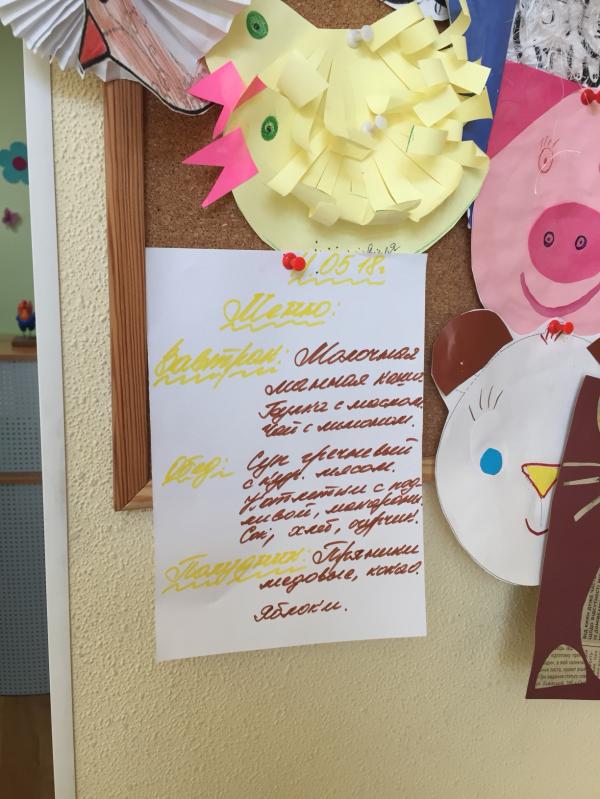 11.05.18г
Меню:
Завтрак: Молочная
манная каша.
Булка с маслом.
Чай с лимоном.
Обед: Суп гречневый
с кур. мясом.
Котлетки с под-
ливой, макароны.
Сок, хлеб, огурчик.
Полудник: Пряники
медовые, какао.
Яблоки.